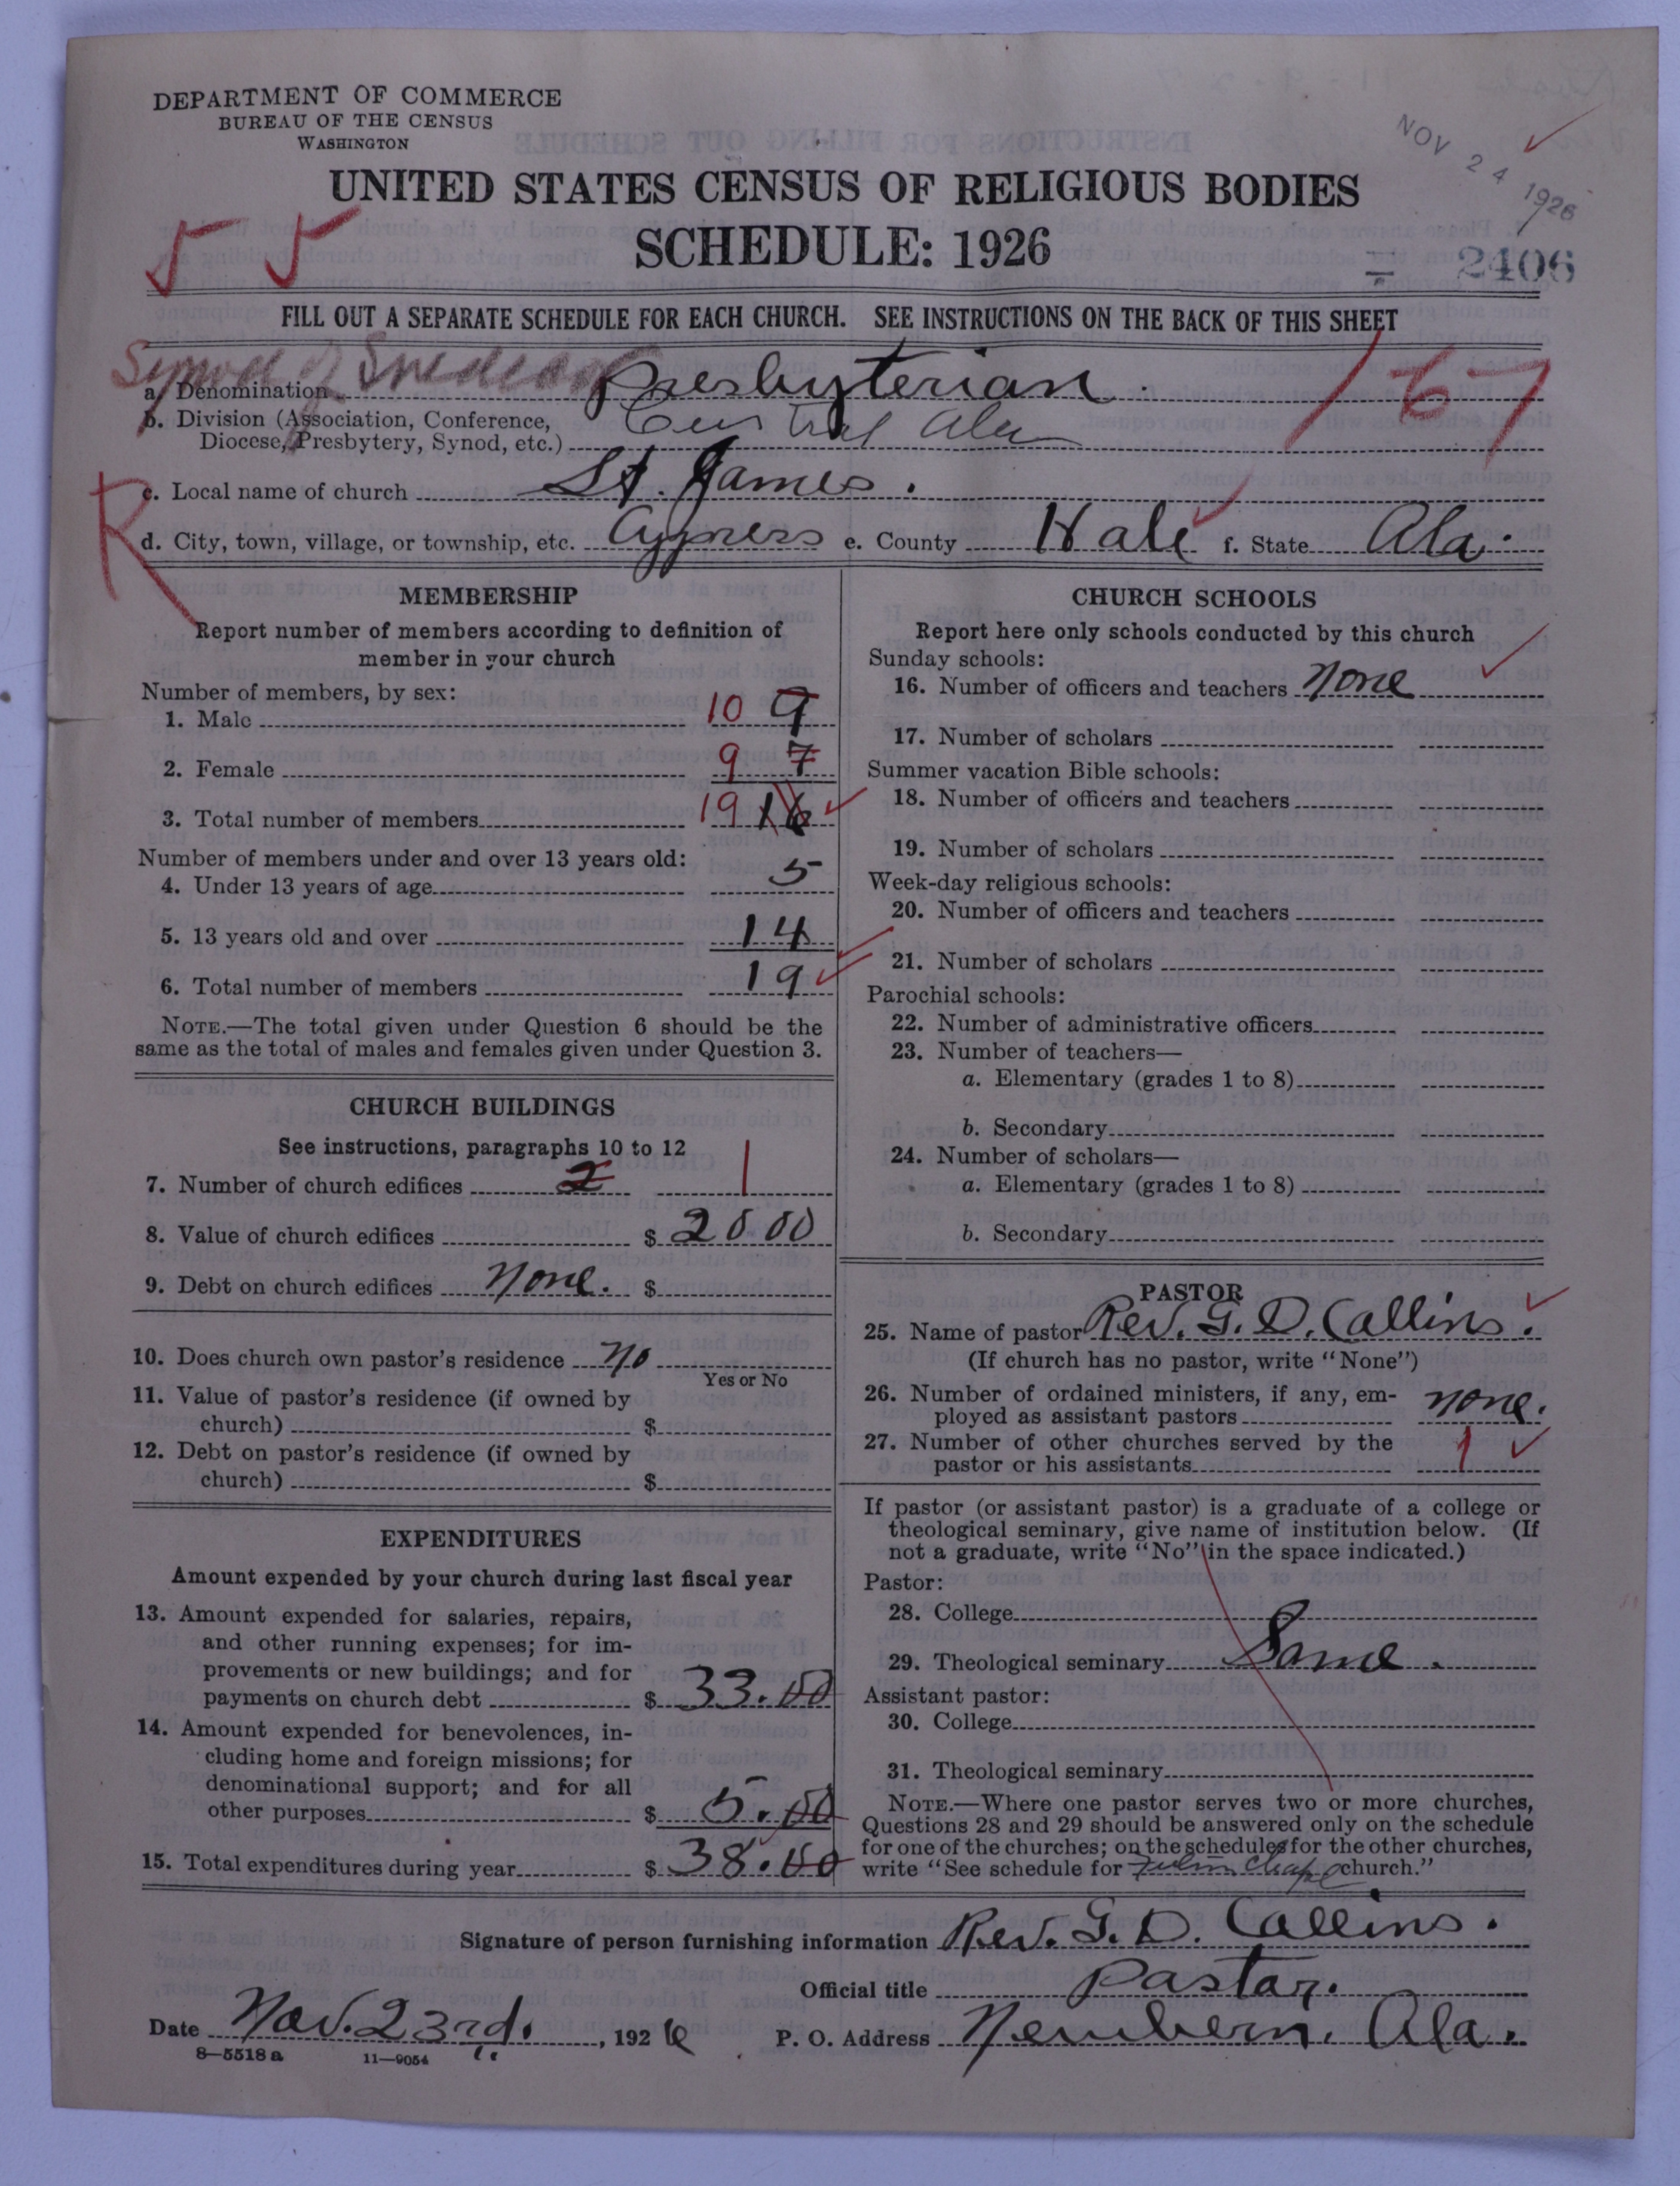 DEPARTMENT OF COMMERCE
BUREAU OF THE CENSUS
WASHINGTON
NOV 24 1926
UNITED STATES CENSUS OF RELIGIOUS BODIES
SCHEDULE: 1926
2406
FILL OUT A SEPARATE SCHEDULE FOR EACH CHURCH. SEE INSTRUCTIONS ON THE BACK OF THIS SHEET
Synod of Snedecor
a. Denomination Presbyterian. 167
b. Division (Association, Conference, Diocese, Presbytery, Synod, etc.) Central Ala
R
c. Local name of church St. James.
d. City, town, village, or township, etc. Cypress e. County Hale f. State Ala.
MEMBERSHIP
Report number of members according to definition of
member in your church
Number of members, by sex:
1. Male 10 9
2. Female 9 7
3. Total number of members 19 16
Number of members under and over 13 years old:
4. Under 13 years of age 5
5. 13 years old and over 14
6. Total number of members 19
NOTE.—The total given under Question 6 should be the
same as the total of males and females given under Question 3.
CHURCH BUILDINGS
See instructions, paragraphs 10 to 12
7. Number of church edifices 2 1
8. Value of church edifices $ 2000
9. Debt on church edifices None. $
10. Does church own pastor's residence No
Yes or No
11. Value of pastor's residence (if owned by
church) $
12. Debt on pastor's residence (if owned by
church) $
EXPENDITURES
Amount expended by your church during last fiscal year
13. Amount expended for salaries, repairs,
and other running expenses; for im-
provements or new buildings; and for
payments on church debt $ 33.00
14. Amount expended for benevolences, in-
cluding home and foreign missions; for
denominational support; and for all
other purposes $ 5.00
15. Total expenditures during year $ 38.00
CHURCH SCHOOLS
Report here only schools conducted by this church
Sunday schools:
16. Number of officers and teachers None
17. Number of scholars
Summer vacation Bible schools:
18. Number of officers and teachers
19. Number of scholars
Week-day religious schools:
20. Number of officers and teachers
21. Number of scholars
Parochial schools:
22. Number of administrative officers
23. Number of teachers—
a. Elementary (grades 1 to 8)
b. Secondary
24. Number of scholars—
a. Elementary (grades 1 to 8)
b. Secondary
PASTOR
25. Name of pastor Rev. G. D. Collins.
(If church has no pastor, write "None")
26. Number of ordained ministers, if any, em-
ployed as assistant pastors none.
27. Number of other churches served by the
pastor or his assistants 1
If pastor (or assistant pastor) is a graduate of a college or
theological seminary, give name of institution below. (If
not a graduate, write "No" in the space indicated.)
Pastor:
28. College
29. Theological seminary Same.
Assistant pastor:
30. College
31. Theological seminary
NOTE.—Where one pastor serves two or more churches,
Questions 28 and 29 should be answered only on the schedule
for one of the churches; on the schedules for the other churches,
write "See schedule for Chapel church."
Signature of person furnishing information Rev. G. D. Collins.
Official title Pastor.
Date Nov. 23rd., 1926 P. O. Address Newbern, Ala.
8—5518 a 11—9054